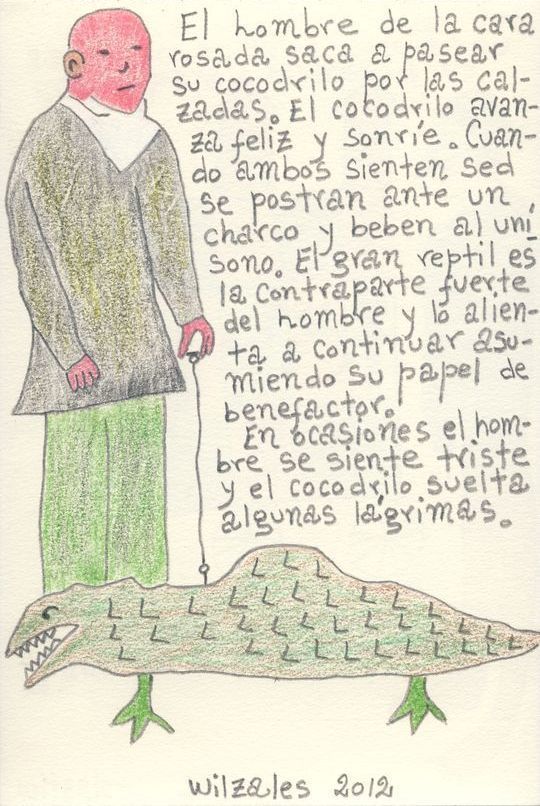 El hombre de la cara
rosada saca a pasear
su cocodrilo por las cal-
zadas. El cocodrilo avan-
za feliz y sonríe. Cuan-
do ambos sienten sed
se postran ante un
charco y beben al uní
sono. El gran reptil es
la contraparte fuerte
del hombre y lo alien-
ta a continuar asu-
miendo su papel de
benefactor.
En ocasiones el hom-
bre se siente triste
y el cocodrilo suelta
algunas lágrimas.
wilzales 2012